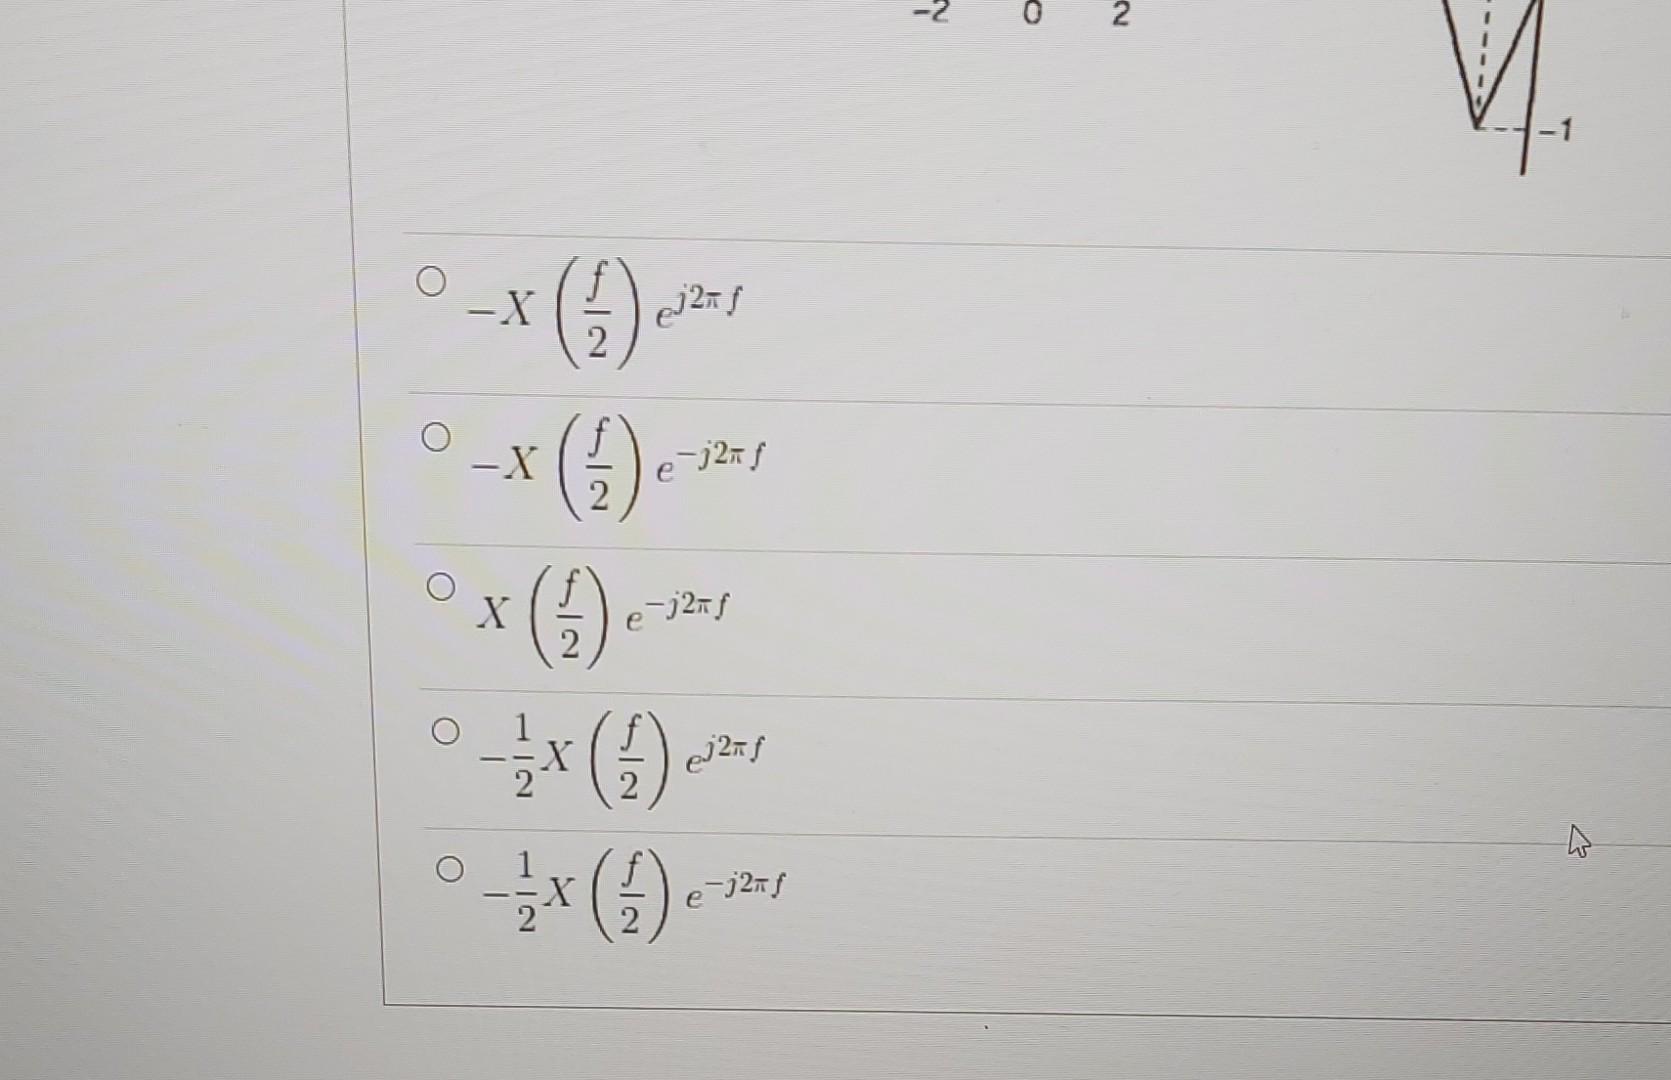 -2 0 2
-1
-X (f/2) e^{j2π f}
-X (f/2) e^{-j2π f}
X (f/2) e^{-j2πf}
-1/2 X (f/2) e^{j2πf}
-1/2 X (f/2) e^{-j2π f}